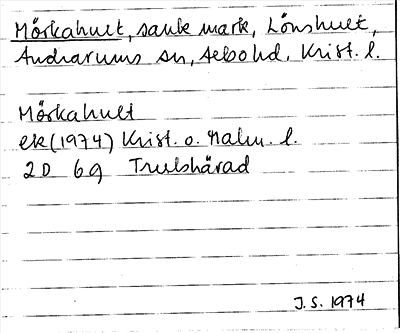 Mörkahult, sank mark, Lönshult,
Andrarums sn, Albo hd, Krist. l.
Mörkahult
ek (1974) Krist. o. Malm. l.
2D 6g Trulshärad
J.S. 1974